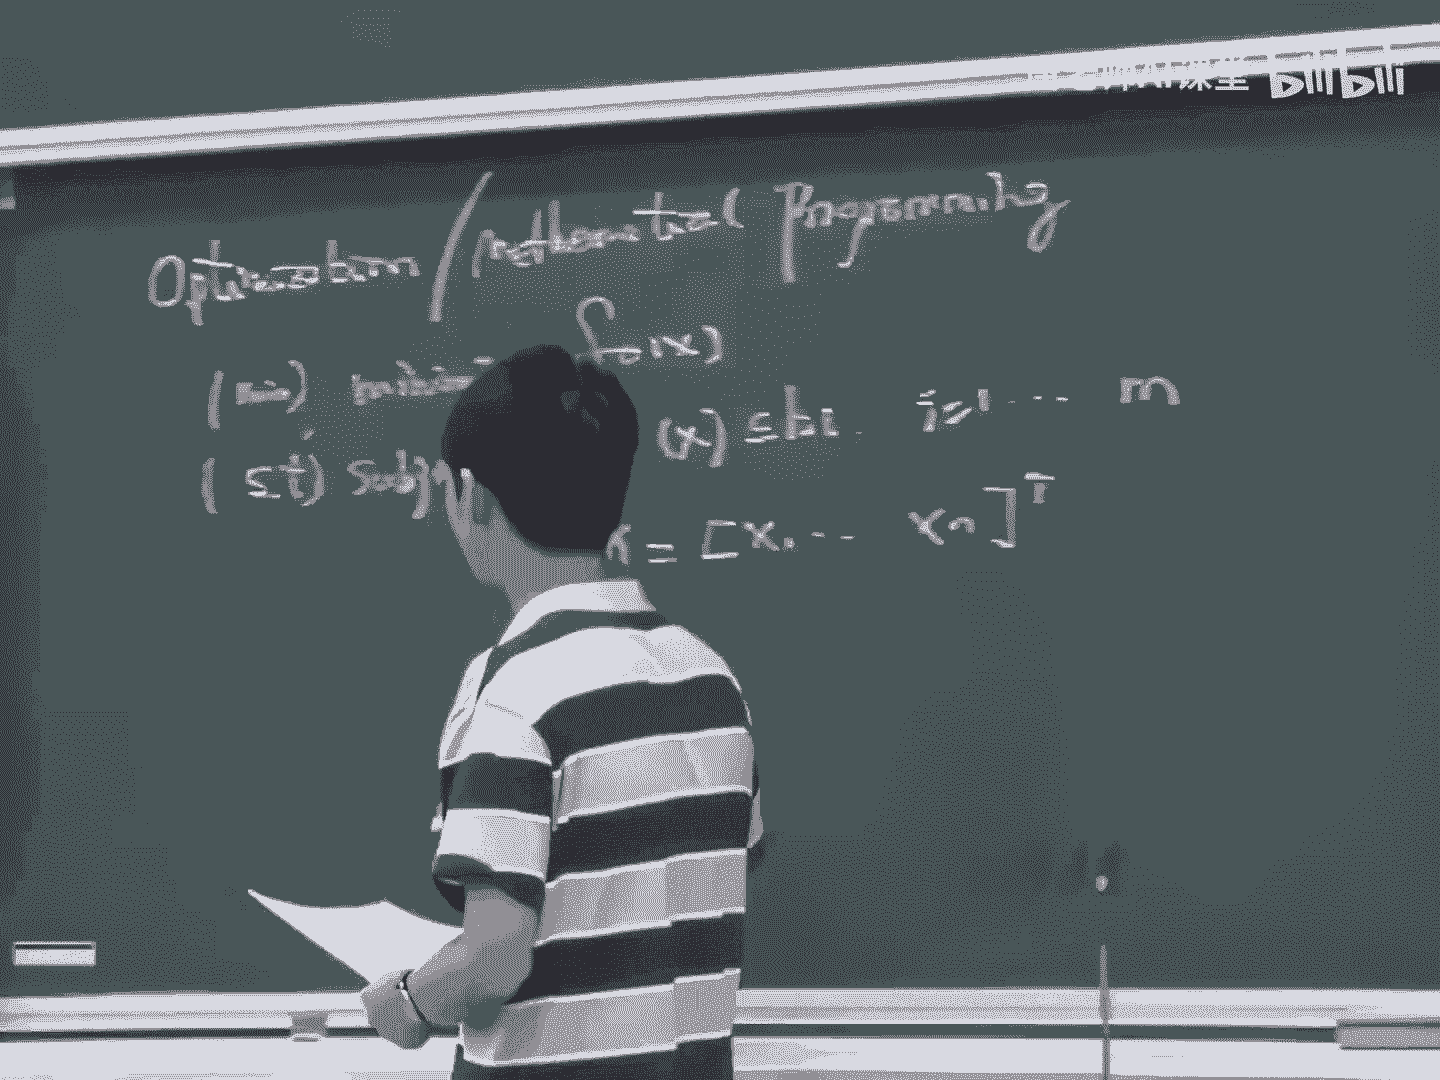 课堂 bilibili
Optimization / Mathematical Programming
(min) minimi f₀(x)
(st) Subj (x) ≤ bi. i=1 ... m
x = [x₁ ... xₙ]ᵀ